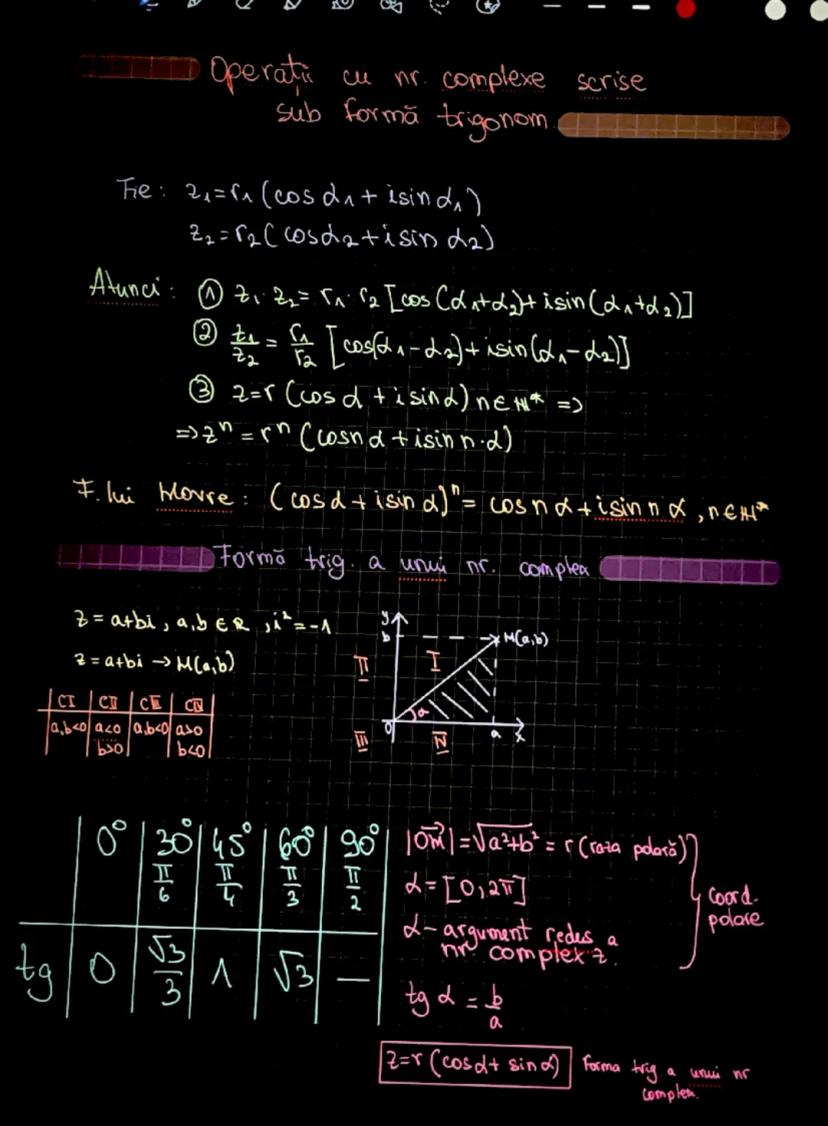 Operații cu nr. complexe scrise
sub formă trigonom.
Fie: z₁=r₁(cos α₁+ isin α₁)
z₂=r₂(cosα₂+isin α₂)
Atunci: ① z₁·z₂= r₁·r₂[cos(α₁+α₂)+isin(α₁+α₂)]
② z₁/z₂ = r₁/r₂ [cos(α₁-α₂)+isin(α₁-α₂)]
③ z=r (cos α +isinα) n∈ℕ* =>
=>zⁿ=rⁿ (cosnα+isin n·α)
F. lui Movre: (cosα+isin α)ⁿ= cosnα+isin n α, n∈ℕ*
Formă trig. a unui nr. complex
z=a+bi, a,b∈R, i²=-1
z=a+bi →M(a,b)
CI CII CIII CIV
a,b<0 a<0 a,b<0 a>0
b>0 b<0
y
b M(a,b)
II I
α
0 a x
III IV
0° 30° 45° 60° 90°
π/6 π/4 π/3 π/2
tg 0 √3/3 1 √3 —
|OM|=√a²+b² = r (raza polară)
α=[0,2π]
α- argument redus a
nr. complex z.
Coord.
polare
tg α = b/a
z=r (cosα+ sinα) Forma trig. a unui nr
complex.